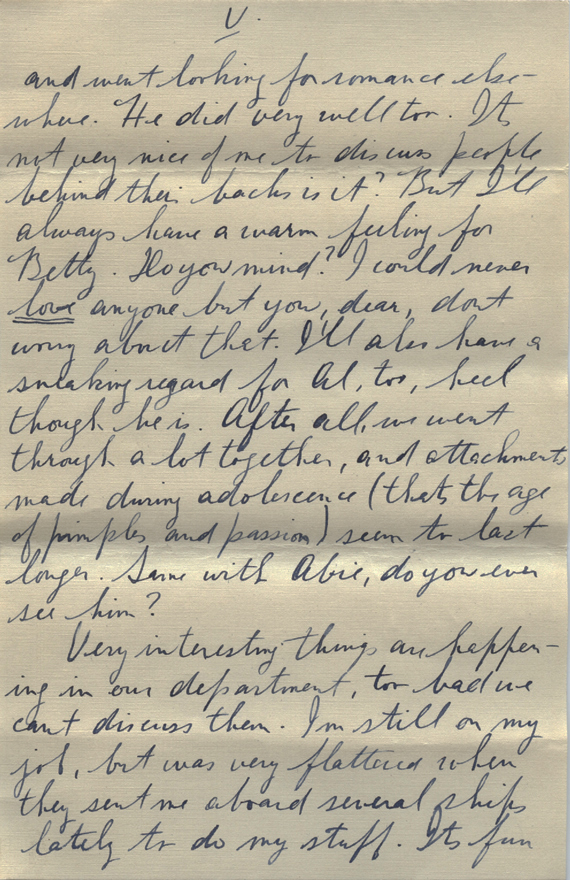 V.
and went looking for romance else-
where. He did very well too. Its
not very nice of me to discuss people
behind their backs is it? But I'll
always have a warm feeling for
Betty. Do you mind? I could never
love anyone but you, dear, dont
worry about that. I'll also have a
sneaking regard for Al, too, heel
though he is. After all, we went
through a lot together, and attachments
made during adolescence (thats the age
of pimples and passion) seem to last
longer. Same with Abie, do you ever
see him?
Very interesting things are happen-
ing in our department, too bad we
cant discuss them. I'm still on my
job, but was very flattered when
they sent me aboard several ships
lately to do my stuff. Its fun